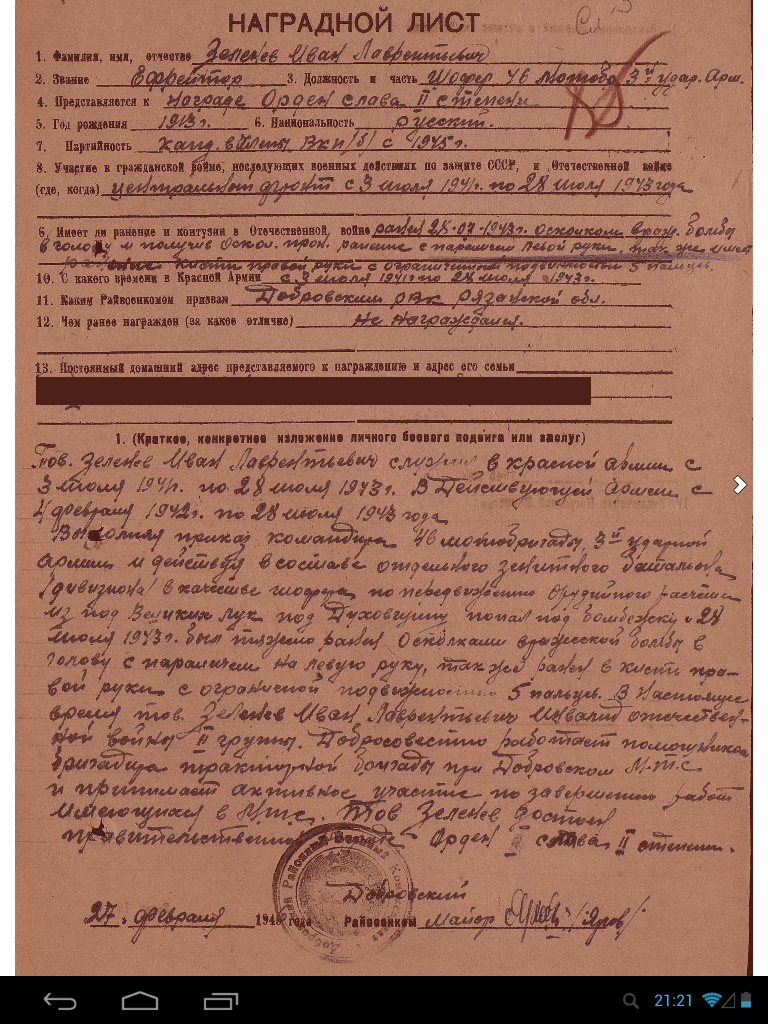 НАГРАДНОЙ ЛИСТ
1. Фамилия, имя, отчество Зеленев Иван Лаврентьевич
2. Звание Ефрейтор 3. Должность и часть Шофер 46 мотобр. 3й удар. Арм.
4. Представляется к награде Орден слава II степени
5. Год рождения 1913 г. 6. Национальность русский.
7. Партийность Канд. в члены ВКП/б/ с 1945 г.
8. Участие в гражданской войне, последующих военных действиях по защите СССР, и Отечественной войне
(где, когда) центральный фронт с 3 июля 1941 г. по 28 июля 1943 года
9. Имеет ли ранение и контузии в Отечественной, войне ранен 28-07-1943 г. осколком враж. бомбы
в голову и получив оскол. прон. ранение с параличем левой руки, так же
ранение кисти правой руки с ограниченной подвижностью 5 пальцев.
10. С какого времени в Красной Армии с 3 июля 1941 г по 28 июля 1943 г.
11. Каким Райвоенкомом призван Добровским РВК Рязанской обл.
12. Чем ранее награжден (за какое отличие) Не награждался.
13. Постоянный домашний адрес представляемого к награждению и адрес его семьи
1. (Краткое, конкретное изложение личного боевого подвига или заслуг)
Тов. Зеленев Иван Лаврентьевич служил в красной армии с
3 июля 1941 г. по 28 июля 1943 г. В Действующей армии с
февраля 1942 г. по 28 июля 1943 года
Выполняя приказ командира 46 мотобригады 3й ударной
армии и действуя в составе отдельного зенитного батальона
/дивизиона/ в качестве шофера по передвижению орудийного расчета
из под Великих лук под Духовщину попал под бомбежку и 28
июля 1943 г. был тяжело ранен осколками вражеской бомбы в
голову с параличем на левую руку, также ранен в кисть пра-
вой руки с ограничной подвижностью 5 пальцев. В Настоящее
время тов. Зеленев Иван Лаврентьевич Инвалид отечествен-
ной войны II группы. Добросовестно работает помощником
бригадира тракторной бригады при Добровском М.Т.С
и принимает активное участие по завершению работ
имеющихся в М.Т.С. Тов Зеленев достоин
правительственной Орден слава II степени.
Добровский
27. февраля 194 года Райвоенком Майор
21:21